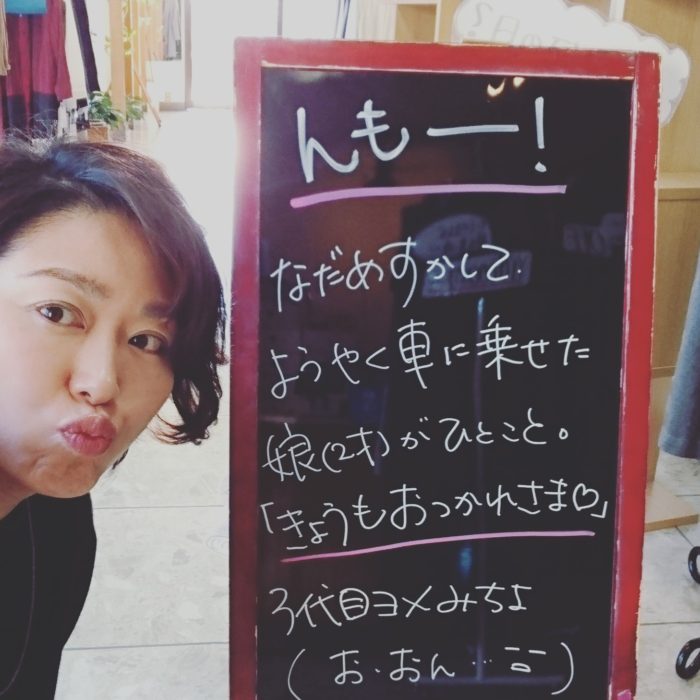 んもー!
なだめすかして、
ようやく車に乗せた
娘(2才)がひとこと。
「きょうもおつかれさま♡」
3代目ヨメみちよ
(お、おん…)